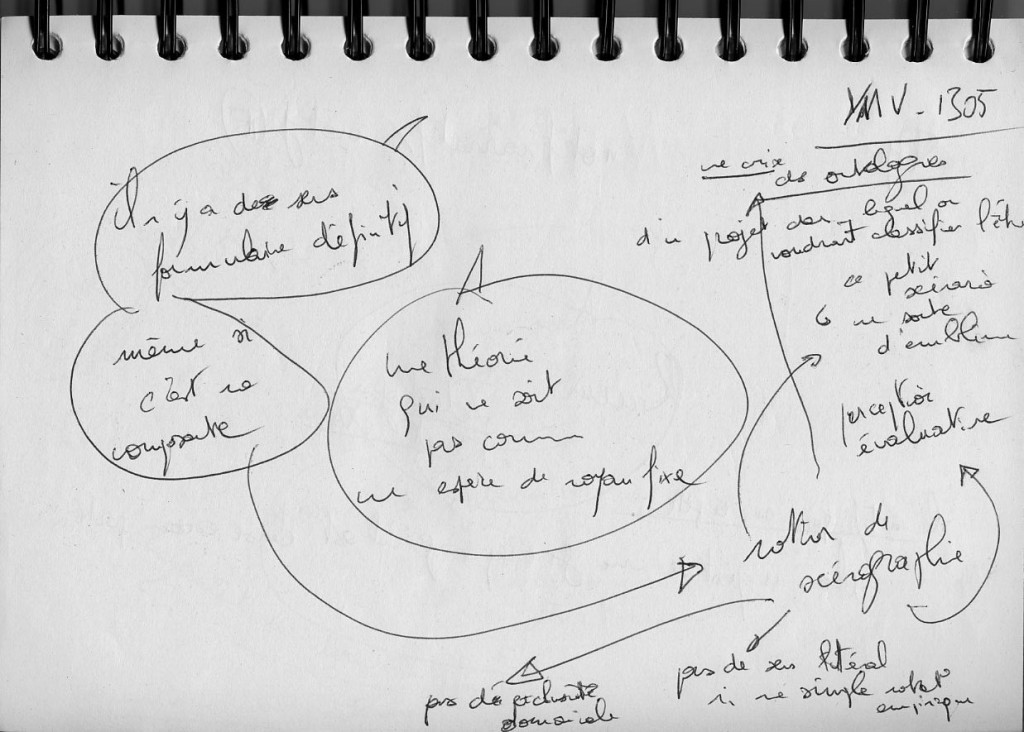 YMV-1305
une crise
des ontologies
d'un projet dans lequel on
voudrait classifier l'être
ce petit
scénario
une sorte
d'emblème
Il n'y a de sens
formulaire définitif
même si
c'est une
composante
une théorie
qui ne soit
pas comme
une espère de noyau fixe
perception
évaluative
notion de
scénographie
pas de sens littéral
ni simple
pas d'exclusivité